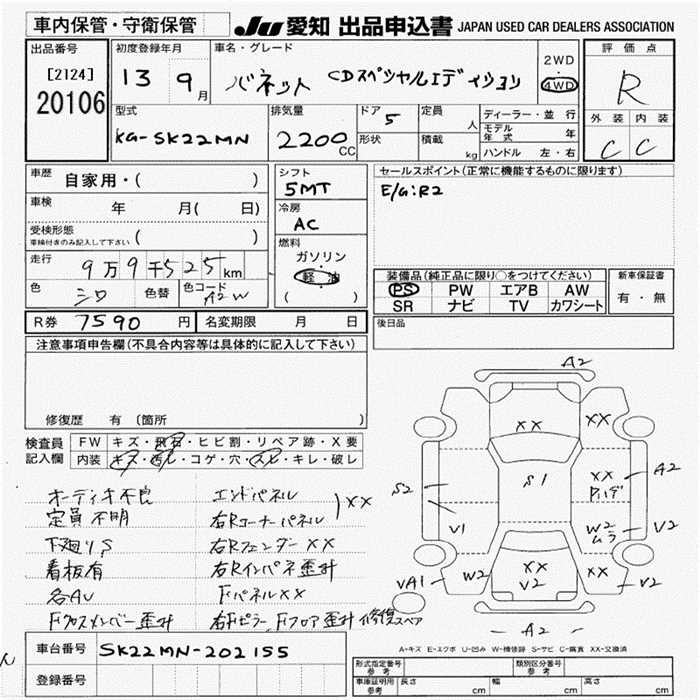 車内保管・守衛保管
JU 愛知 出品申込書 JAPAN USED CAR DEALERS ASSOCIATION
出品番号
[2124]
20106
初度登録年月
13 9月
車名・グレード
バネット CDスペシャルIデイション
2WD
4WD
評価点
R
外装 内装
C C
型式
KG-SK22MN
排気量
2200 CC
ドア 5
形状
定員 人
積載 kg
ディーラー・並行
モデル年式 年
ハンドル 左・右
車歴 自家用・( )
車検 年 月( 日)
受検形態
車検付きのみ記入して下さい ( )
走行 9万9千525km
色 シロ 色替 色コード A2W
シフト
5MT
冷房
AC
燃料
ガソリン
軽油
( )
セールスポイント(正常に機能するものに限ります)
E/G:R2
装備品(純正品に限り○をつけてください)
PS PW エアB AW
SR ナビ TV カワシート
新車保証書
有・無
R券 7590 円 名変期限 月 日
後日品
注意事項申告欄(不具合内容等は具体的に記入して下さい)
修復歴 有 (箇所 )
検査員記入欄
FW キズ・飛石・ヒビ割・リペア跡・X要
内装 キズ・汚レ・コゲ・穴・スレ・キレ・破レ
オーディオ不良
定員不明
下廻りS
看板有
各AU
Fクロスメンバー歪計
エンドパネル
右Rコーナーパネル XX
右RフェンダーXX
右Rインパネ歪計
FパネルXX
右Fピラー Fフロア歪計 修復
A2
XX
XX
S1
XX
Pハゲ
A2
S2
V1
W2
ムラ
V2
VA1
W2
XX
V2
XX
V2
スペア
A2
A-キズ E-エクボ U-凹み W-補修跡 S-サビ C-腐食 XX-交換済
車台番号 SK22MN-202155
登録番号
形式指定番号
参考
類別区分番号
参考
車庫証明用
参考
長さ cm
幅 cm
高さ cm